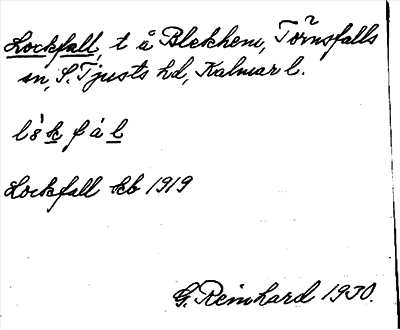 Lockfall, t å Blekhem, Törnsfalls
sn, S. Tjusts hd, Kalmar l.
lòkfál
Lockfall kb 1919
G. Reinhard 1930.